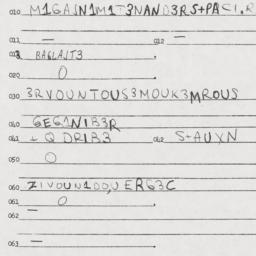 010 M1GASN1M1T3NAND3RS+PACI.R
011 — 012 —
013 BAGLAST3
020 O
030 3RVOUNTOUS3MOUK3MROUS
040 GEG1NIB3R
041 + Q DRIB3 042 S+AUXN
050 O
060 ZIVOUN1DO,UERG3C
061 O
062 —
063 —